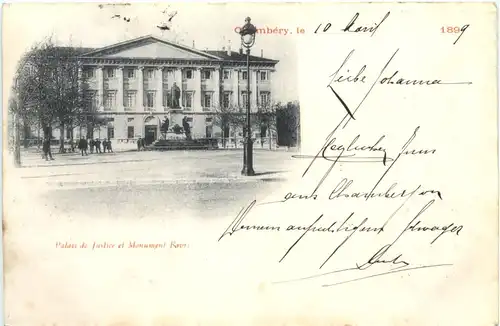 Chambéry, le 10 April 1899
Liebe Johanna
Herzlichen Gruss
aus Chambéry von
Deinem aufrichtigen Schwager
Palais de Justice et Monument Favre